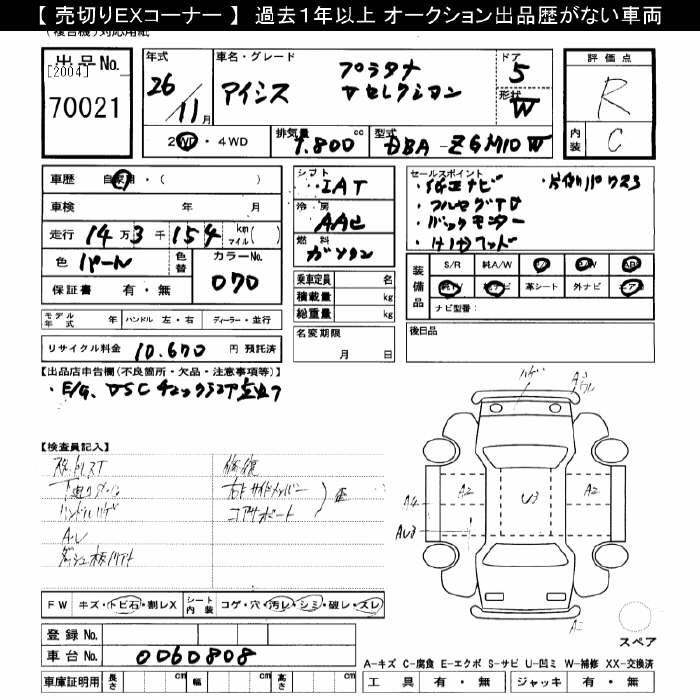 【 売切りEXコーナー 】 過去1年以上 オークション出品歴がない車両
(複合機)対応用紙
出品No.
[2004]
70021
年式
26
11月
車名・グレード
アイシス
プラタナ
Vセレクション
ドア
5
形状
W
評価点
R
内装
C
2WD・4WD
排気量
1.800 cc
型式
DBA-ZGM10W
車歴
自家用・( )
車検 年 月
走行 14万3千154 km マイル( )
色 パール
色替
カラーNo.
070
保証書 有・無
シフト
IAT
冷房
AAC
燃料
ガソリン
乗車定員 名
積載量 kg
総重量 kg
名変期限
月 日
セールスポイント
・純正ナビ
・フルセグTV
・バックモニター
・片側パワスラ
装備品
S/R
純A/W
革シート
外ナビ
ナビ型番:
後日品
モデル年式 年
ハンドル 左・右
ディーラー・並行
リサイクル料金 10.670 円 預託済
【出品店申告欄(不良箇所・欠品・注意事項等)】
・E/G、VSCチェックランプ点灯
【検査員記入】
修復
右サイドメンバー
コアサポート
ハンドルハゲ
FW キズ・トビ石・割レX
シート内装 コゲ・穴・汚レ・シミ・破レ・スレ
登録No.
車台No. 0060808
車庫証明用
長さ cm
幅 cm
高さ cm
A2
U3
A2
A4
AU3
スペア
A-キズ C-腐食 E-エクボ S-サビ U-凹ミ W-補修 XX-交換済
工具 有・無
ジャッキ 有・無